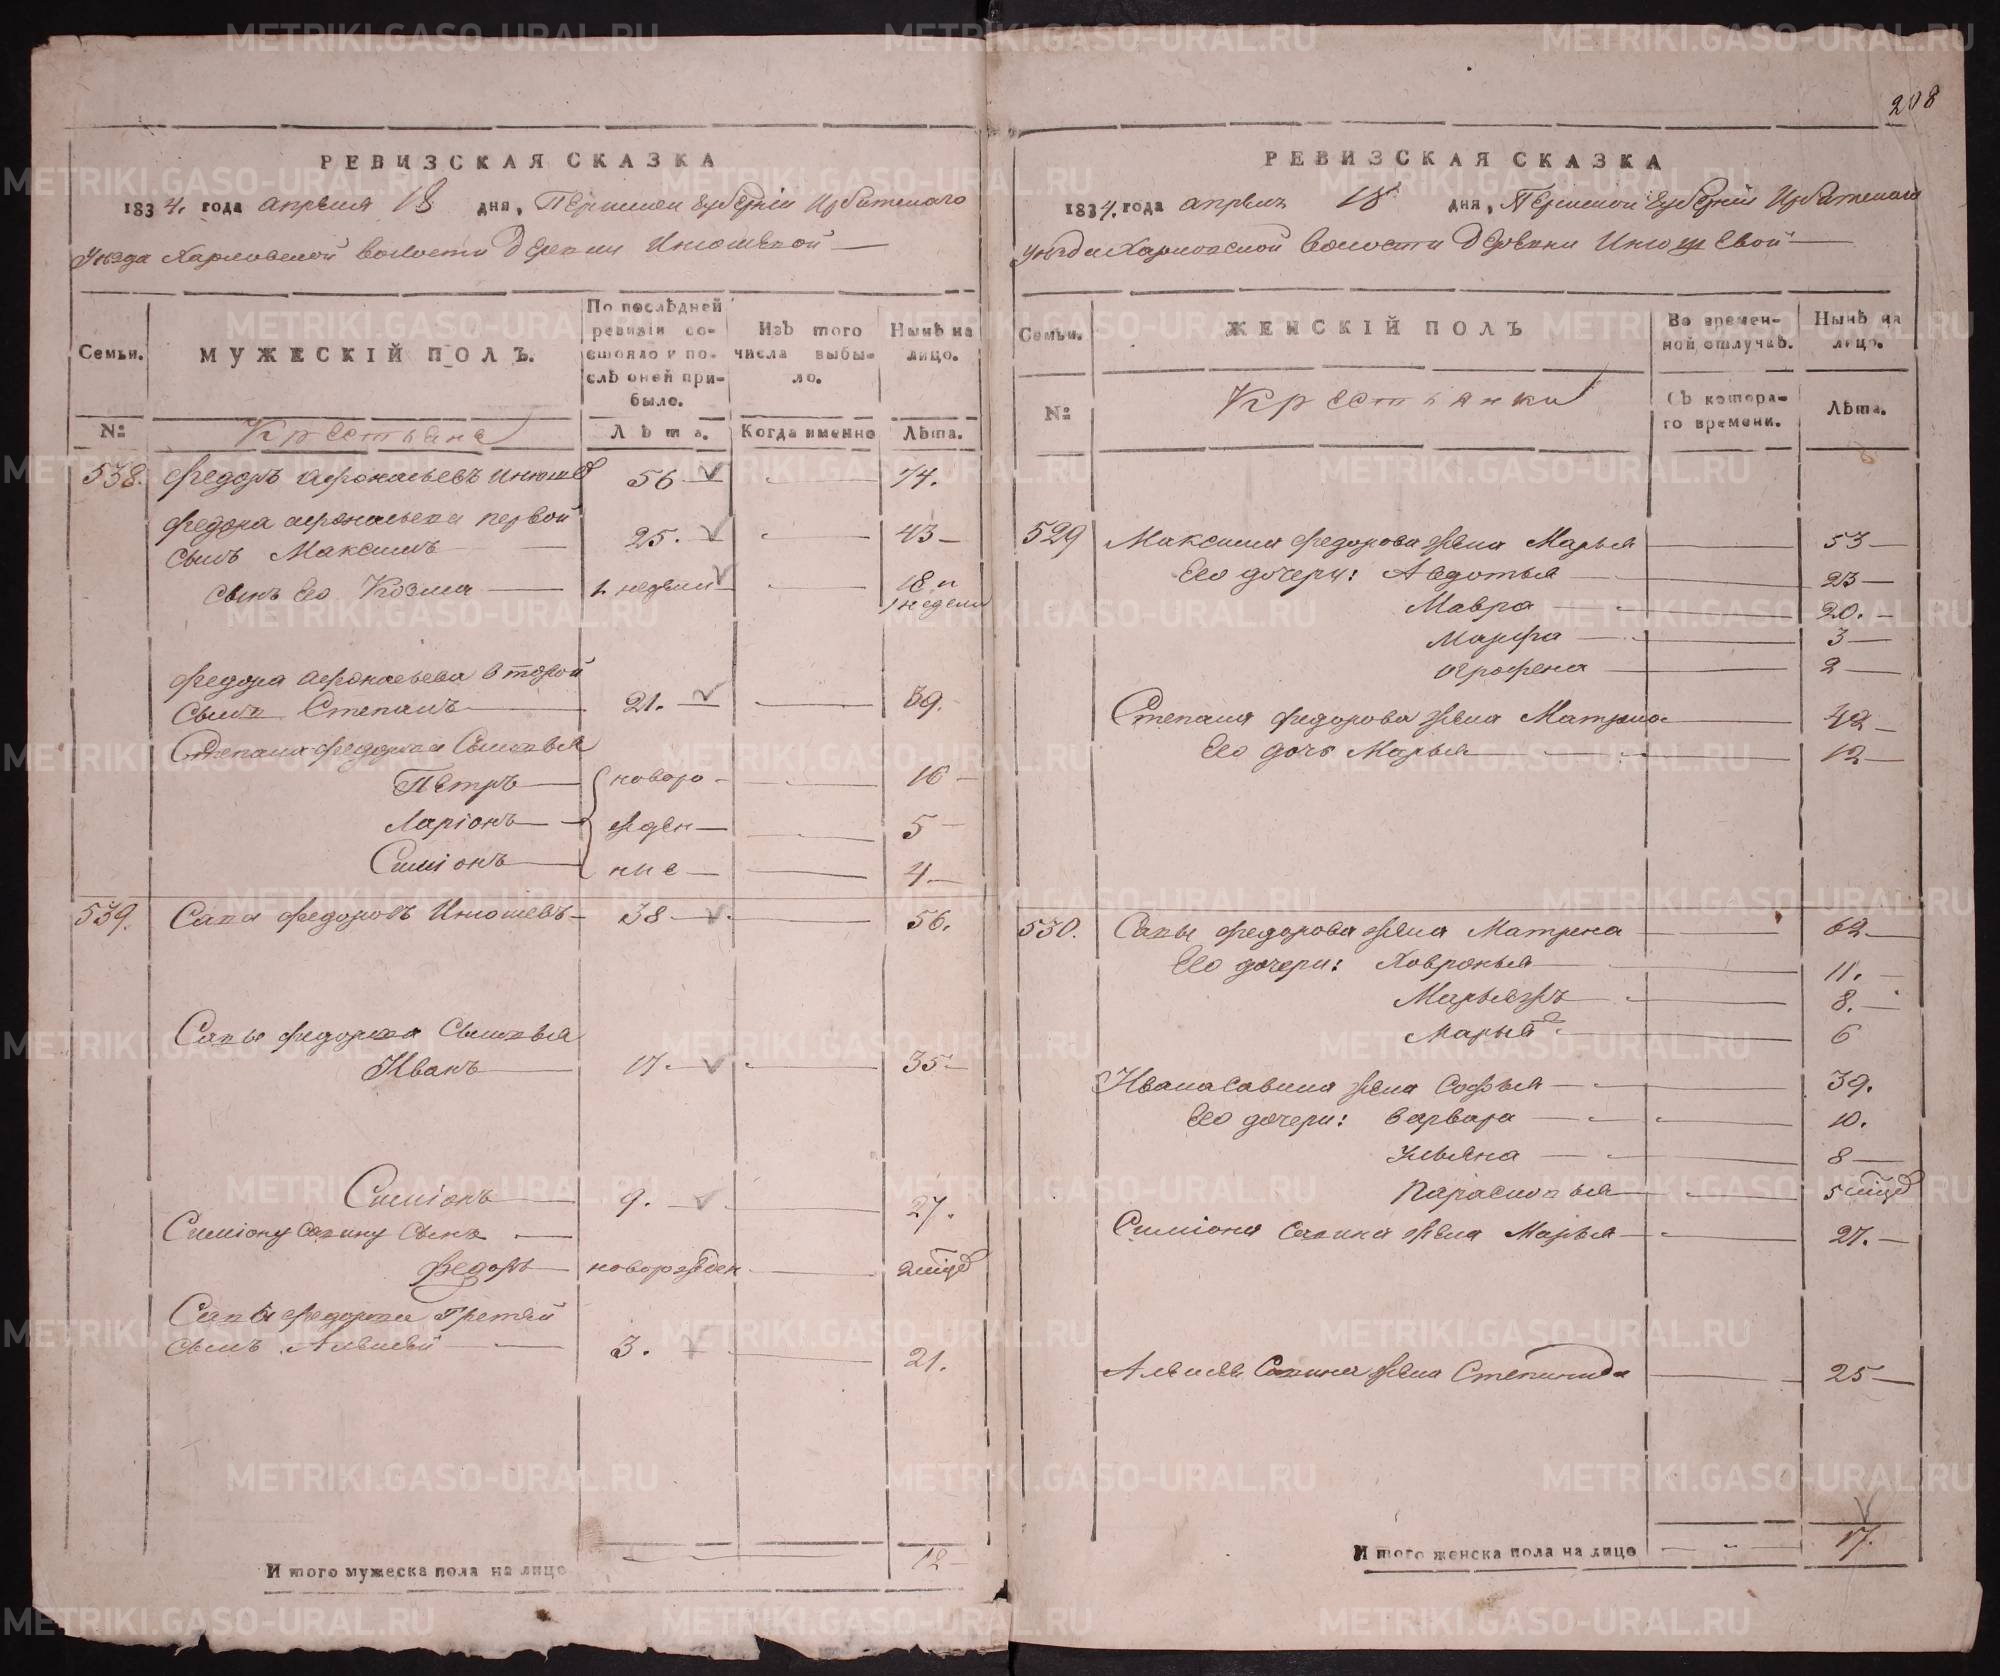 РЕВИЗСКАЯ СКАЗКА
1834. года апреля 18 дня, Пермской губернiи Ирбитскаго
уезда Харловской волости деревни Инюшевой
Семьи.
МУЖЕСКIЙ ПОЛЪ.
По послѣдней ревизiи состояло и послѣ оней прибыло.
Изъ того числа выбыло.
Нынѣ на лицо.
№
Крестьяне
Лѣта.
Когда именно
Лѣта.
538. Федоръ Афонасьевъ Инюшев 56 74.
Федора Афонасьева первой
сынъ Максимъ 25. 43
сынъ Его Козма 1 недели 18. и
1 недели
Федора Афонасьева второй
сынъ Степанъ 21. 39.
Степана Федорова Сыновья
Петръ новоро 16
Ларiонъ жден 5
Симiонъ ные 4
539. Сава Федоровъ Инюшевъ 38 56.
Савы Федорова Сыновья
Иванъ 17. 35
Симiонъ 9. 27.
Симiону Савину Сынъ
Федоръ новорожден 2 мѣсяц
Савы Федорова Третей
сынъ Алексей 3. 21.
И того мужеска пола на лицо 12
208
РЕВИЗСКАЯ СКАЗКА
1834. года апреля 18 дня, Пермской губернiи Ирбитскаго
уезда Харловской волости деревни Инюшевой
Семьи.
ЖЕНСКIЙ ПОЛЪ
Во временной отлучкѣ.
Нынѣ на лицо.
№
Крестьянки
Съ которого времени.
Лѣта.
529 Максима Федорова жена Марья 53
Его дочери: Авдотья 23
Мавра 20.
Марфа 3
Агрофена 2
Степана Федорова жена Матрона 42
Его дочь Марья 12
530. Савы Федорова жена Матрена 62
Его дочери: Ховронья 11.
Марья 8.
Марья 6
Ивана Савина жена Софья 39.
Его дочери: Варвара 10.
Ульяна 8
Парасковья 5 мѣсяц
Симiона Савина жена Марья 27.
Алексея Савина жена Степанида 25
И того женска пола на лицо 17.
METRIKI.GASO-URAL.RU